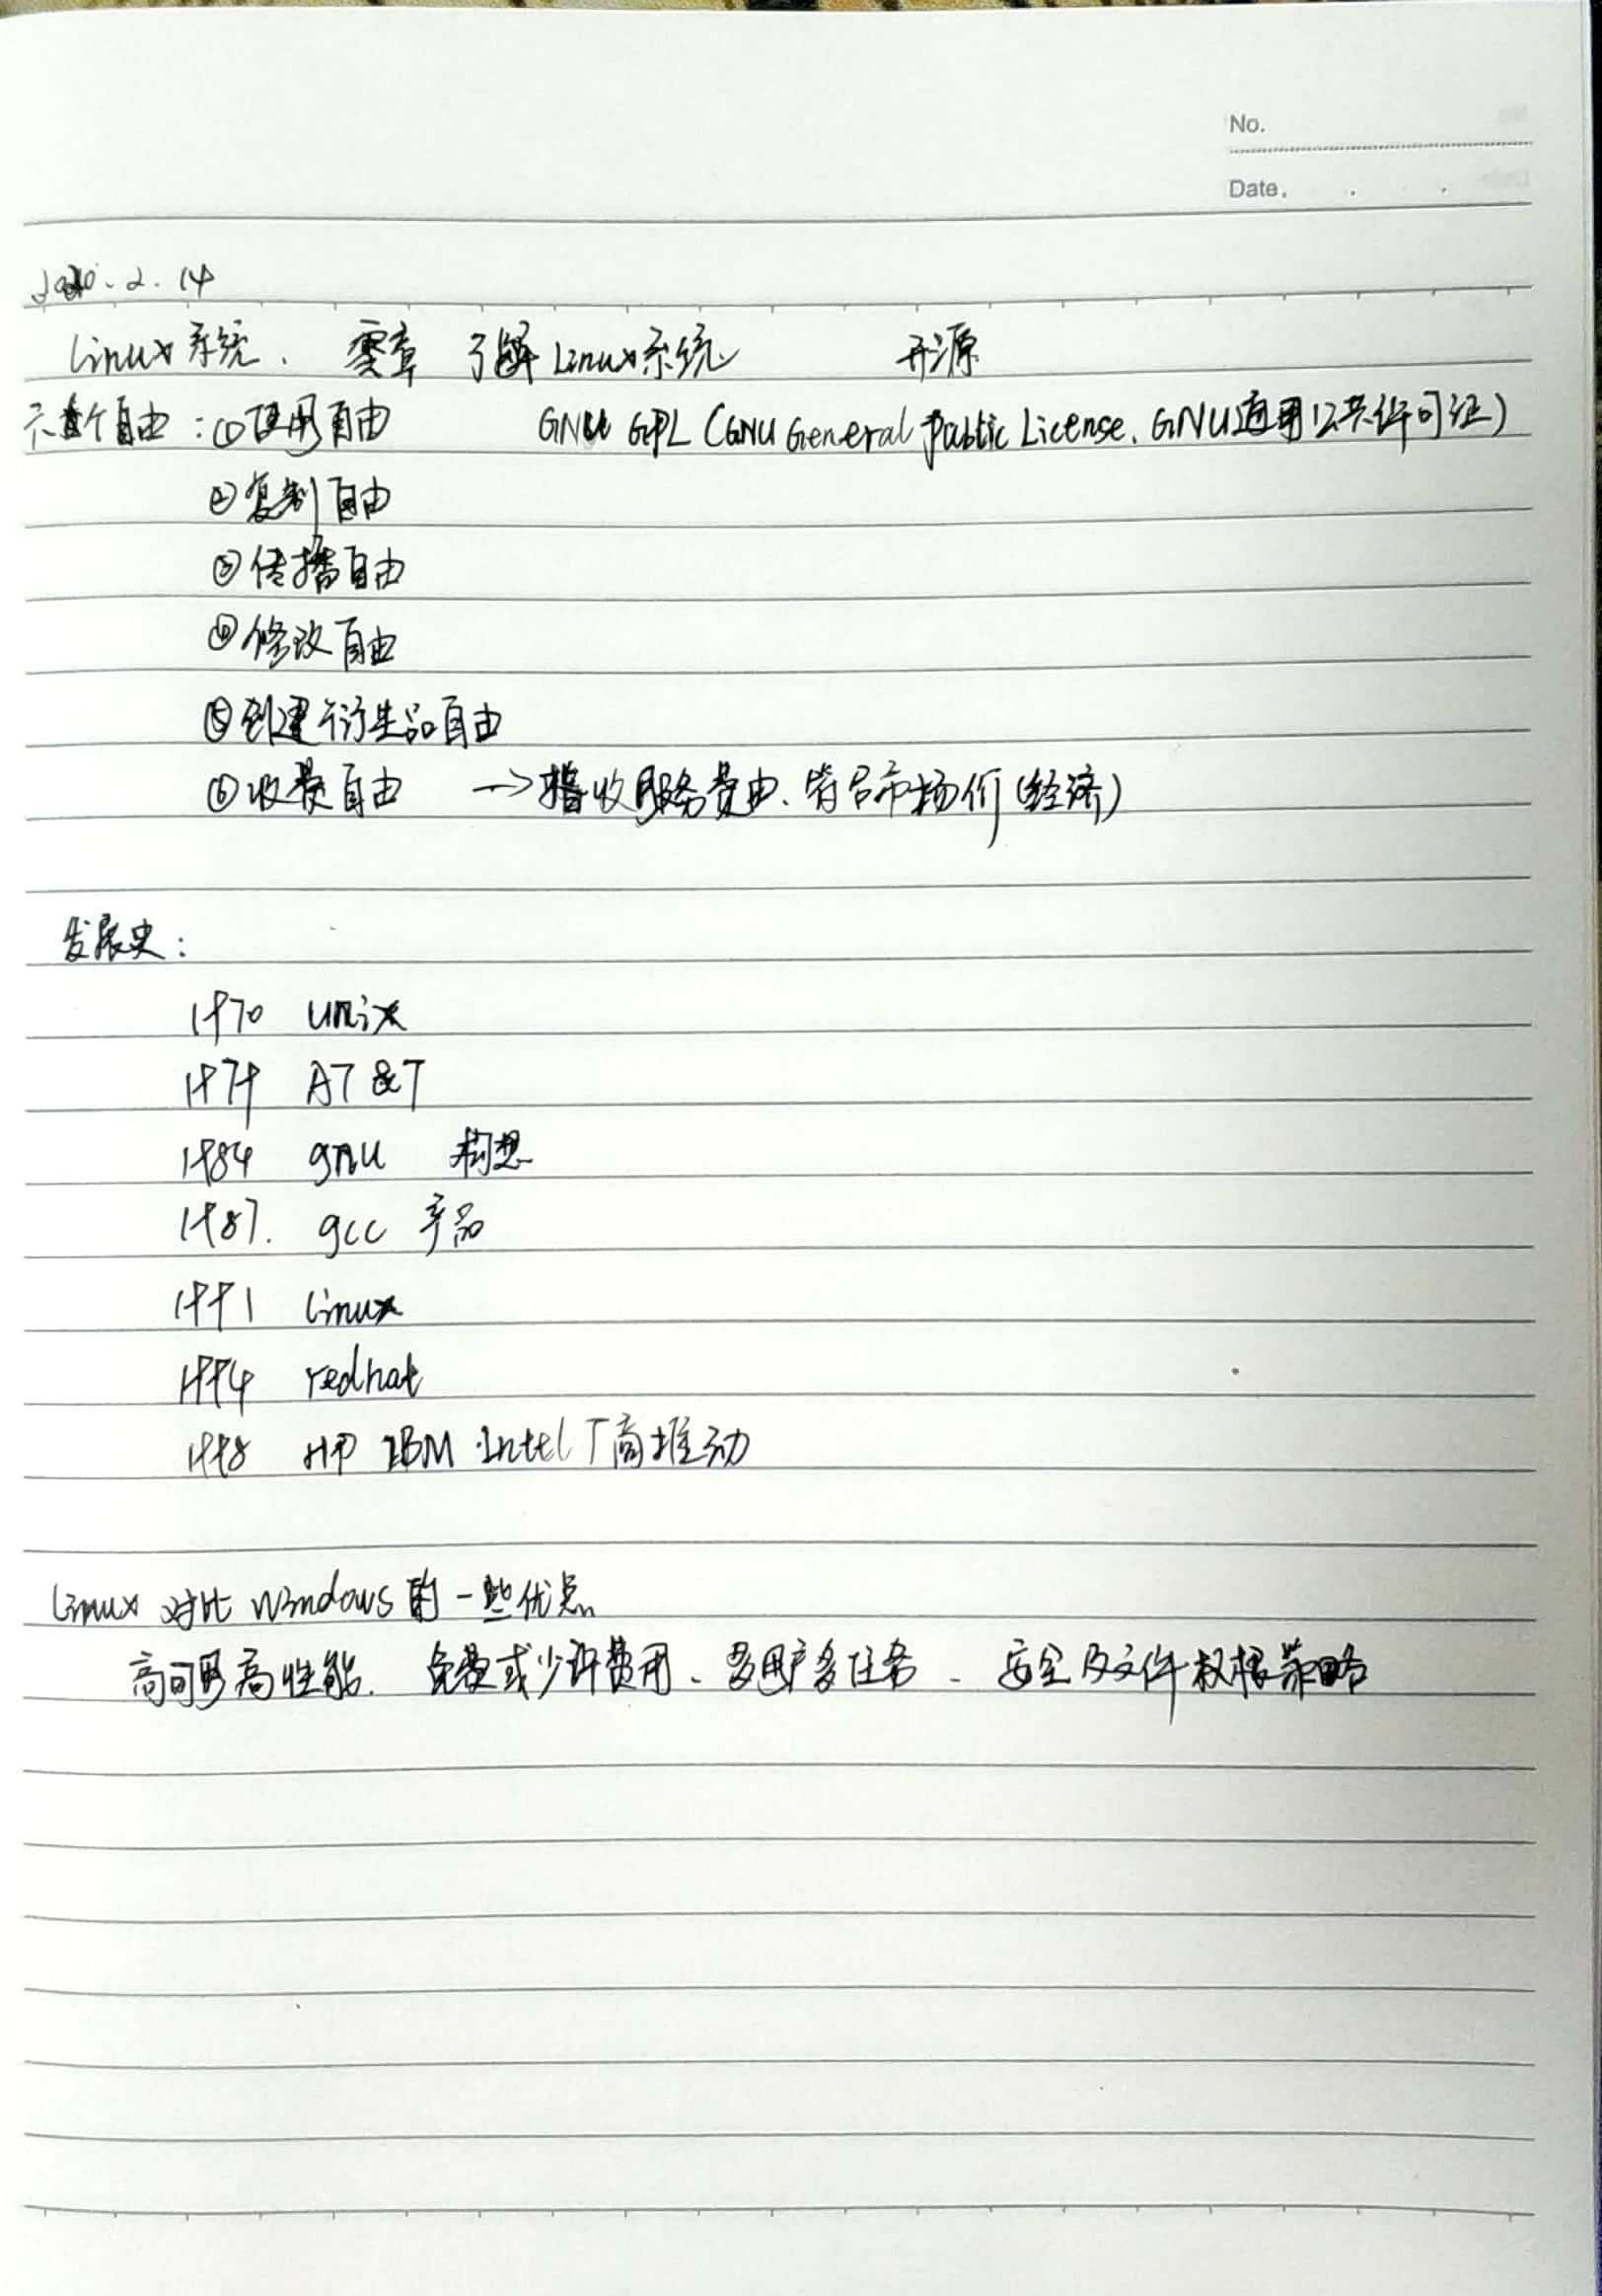 No.
Date.
2020.2.14
Linux系统、零章 了解Linux系统 开源
六个自由:①使用自由 GNU GPL(GNU General Public License、GNU通用公共许可证)
②复制自由
③传播自由
④修改自由
⑤创建衍生品自由
⑥收费自由 →指收服务费由、符合市场价(经济)
发展史:
1970 unix
1979 AT&T
1984 gnu 构想
1987. gcc 产品
1991 linux
1994 redhat
1998 HP IBM Intel 厂商推动
Linux 对比 Windows 的一些优点
高可用高性能、免费或少许费用、多用户多任务、安全及文件权限策略